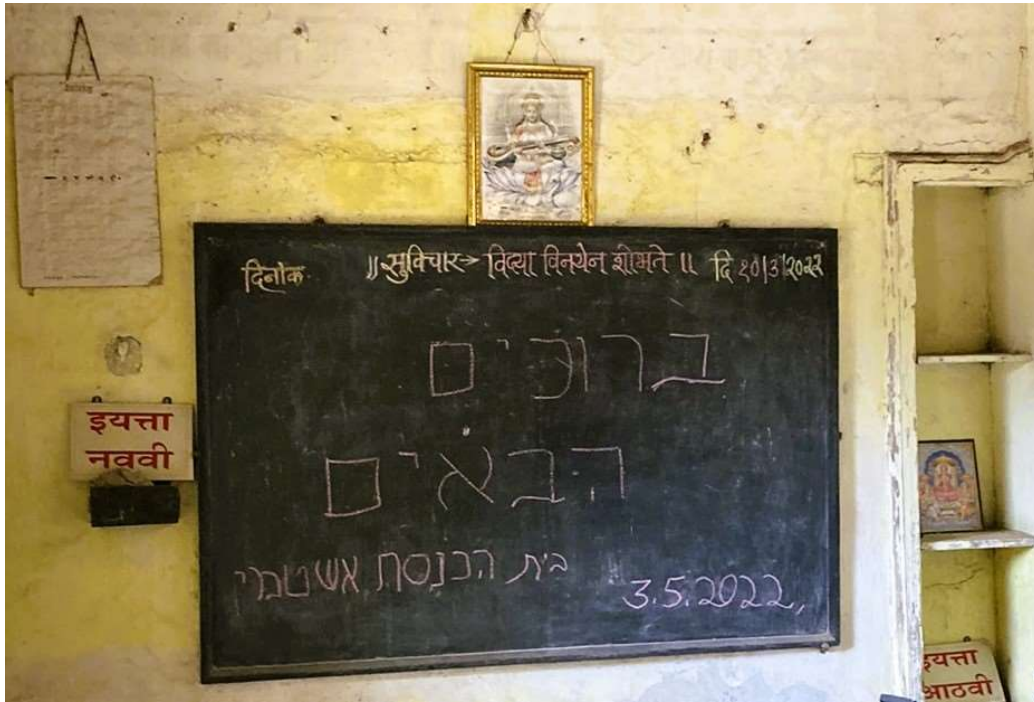 दिनांक. ॥ सुविचार → विद्या विनयेन शोभते ॥ दि १०/३/२०२२
ברוכים
הבאים
בית הכנסת אשטמי
3.5.2022,
इयत्ता
नववी
इयत्ता
आठवी